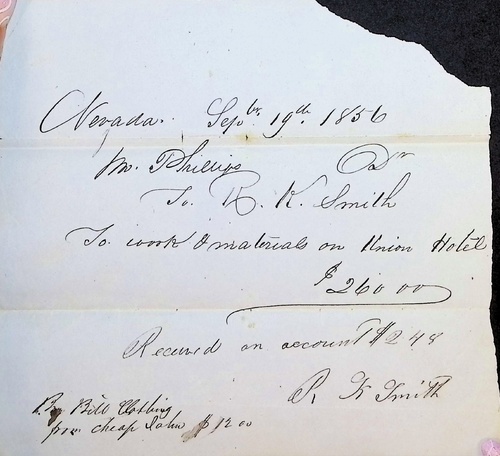 Nevada. Sepbr 19th. 1856
Mr. Phillips Dr
To. R. K. Smith
To work & materials on Union Hotel
$260 00
Received on account $248
R K Smith
By Bill Clothing
from cheap John $12 00